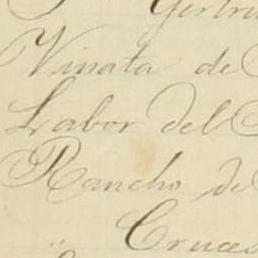 Vinata de
Labor del
Rancho de
Cruces